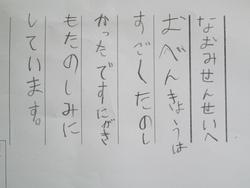 なおみせんせいへ
おべんきょうは
すごしたのし
かったですにがき
もたのしみに
しています。